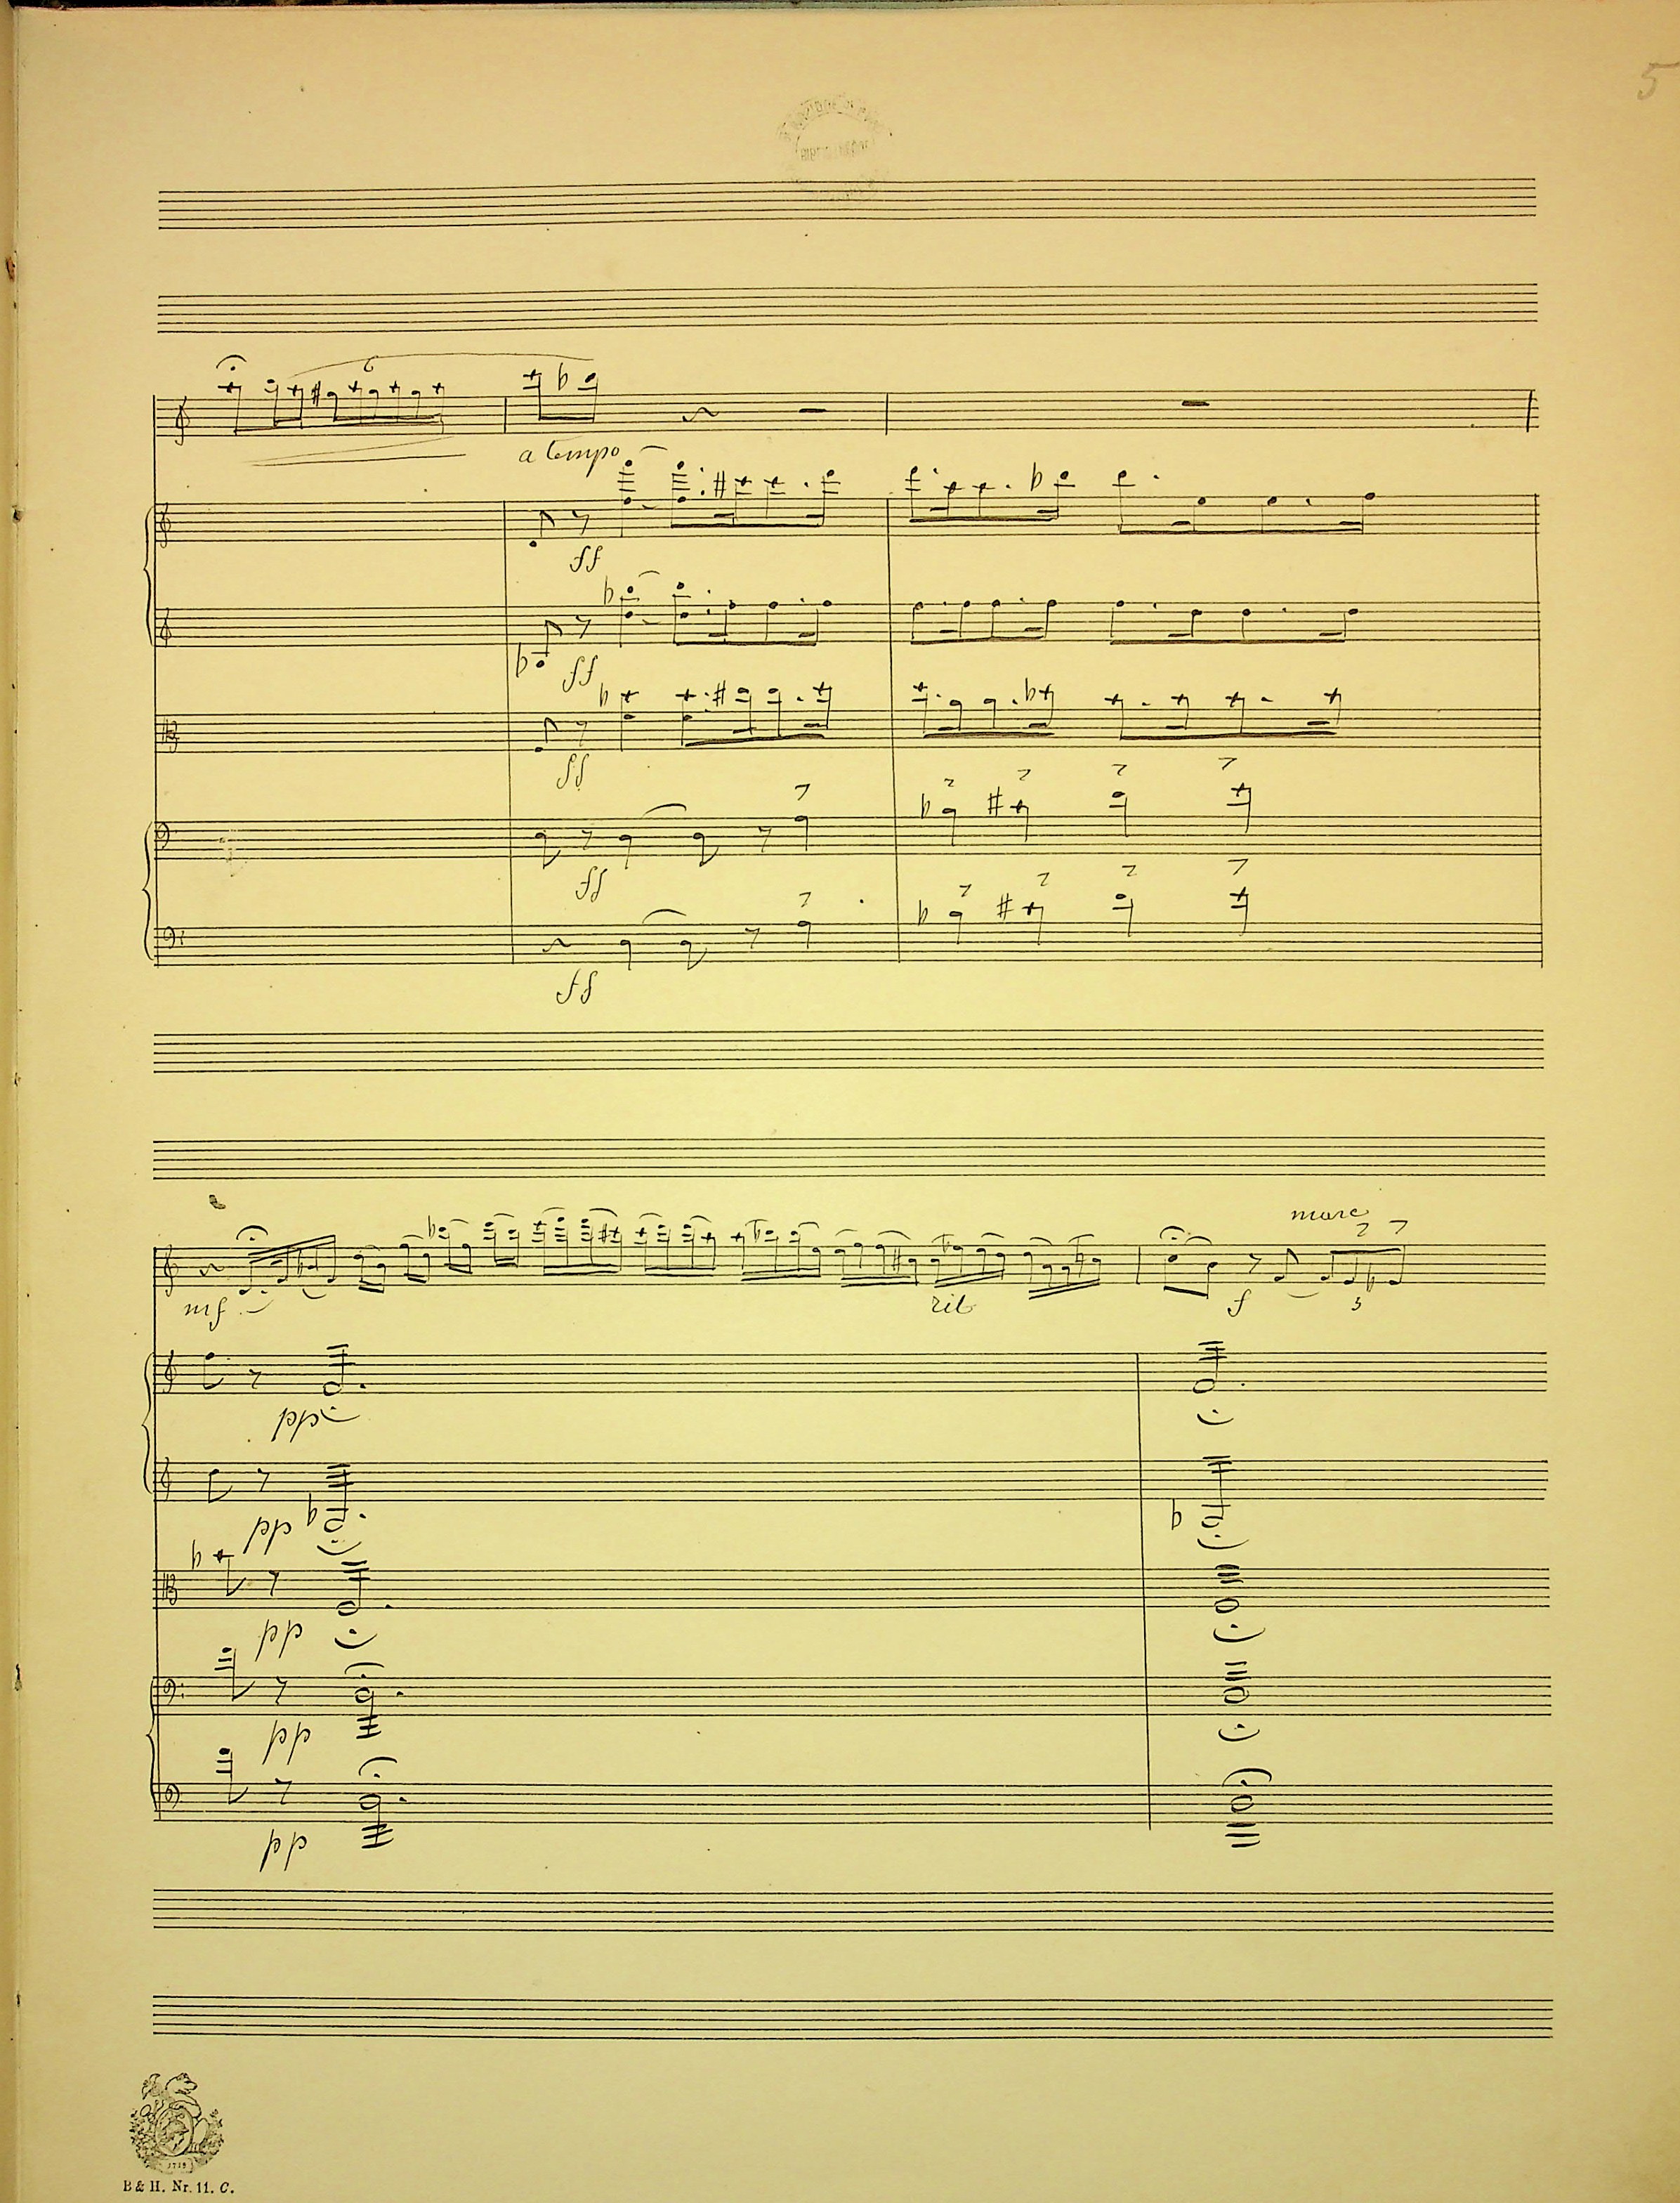 5
6
a tempo
ff
ff
ff
ff
ff
marc
mf
rit
f
3
pp
pp
pp
pp
pp
1719
B & H. Nr. 11. C.